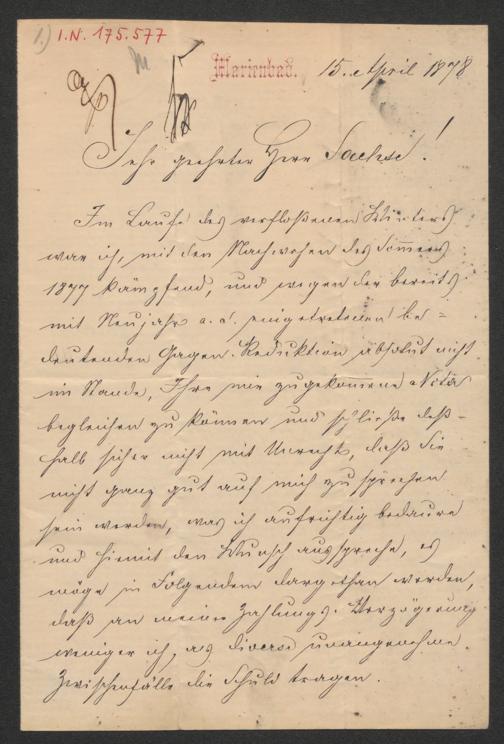 1.) I.N. 175.577
Marienbad. 15. April 1878
Sehr geehrter Herr Sachse!
Im Laufe des verfloßenen Winters
war ich, mit den Nachwehen des Sommers
1877 kämpfend, und wegen der bereits
mit Neujahr a. c. eingetretenen be=
deutenden Gagen-Reduktion absolut nicht
im Stande, Ihre mir zugekommene Nota
begleichen zu können und schließe deß-
halb sicher nicht mit Unrecht, daß Sie
nicht ganz gut auf mich zu sprechen
sein werden, was ich aufrichtig bedaure
und hiemit den Wunsch ausspreche, es
möge in Folgendem dargethan werden,
daß an meiner Zahlungs-Verzögerung
weniger ich, als diverse unangenehme
Zwischenfälle die Schuld tragen.